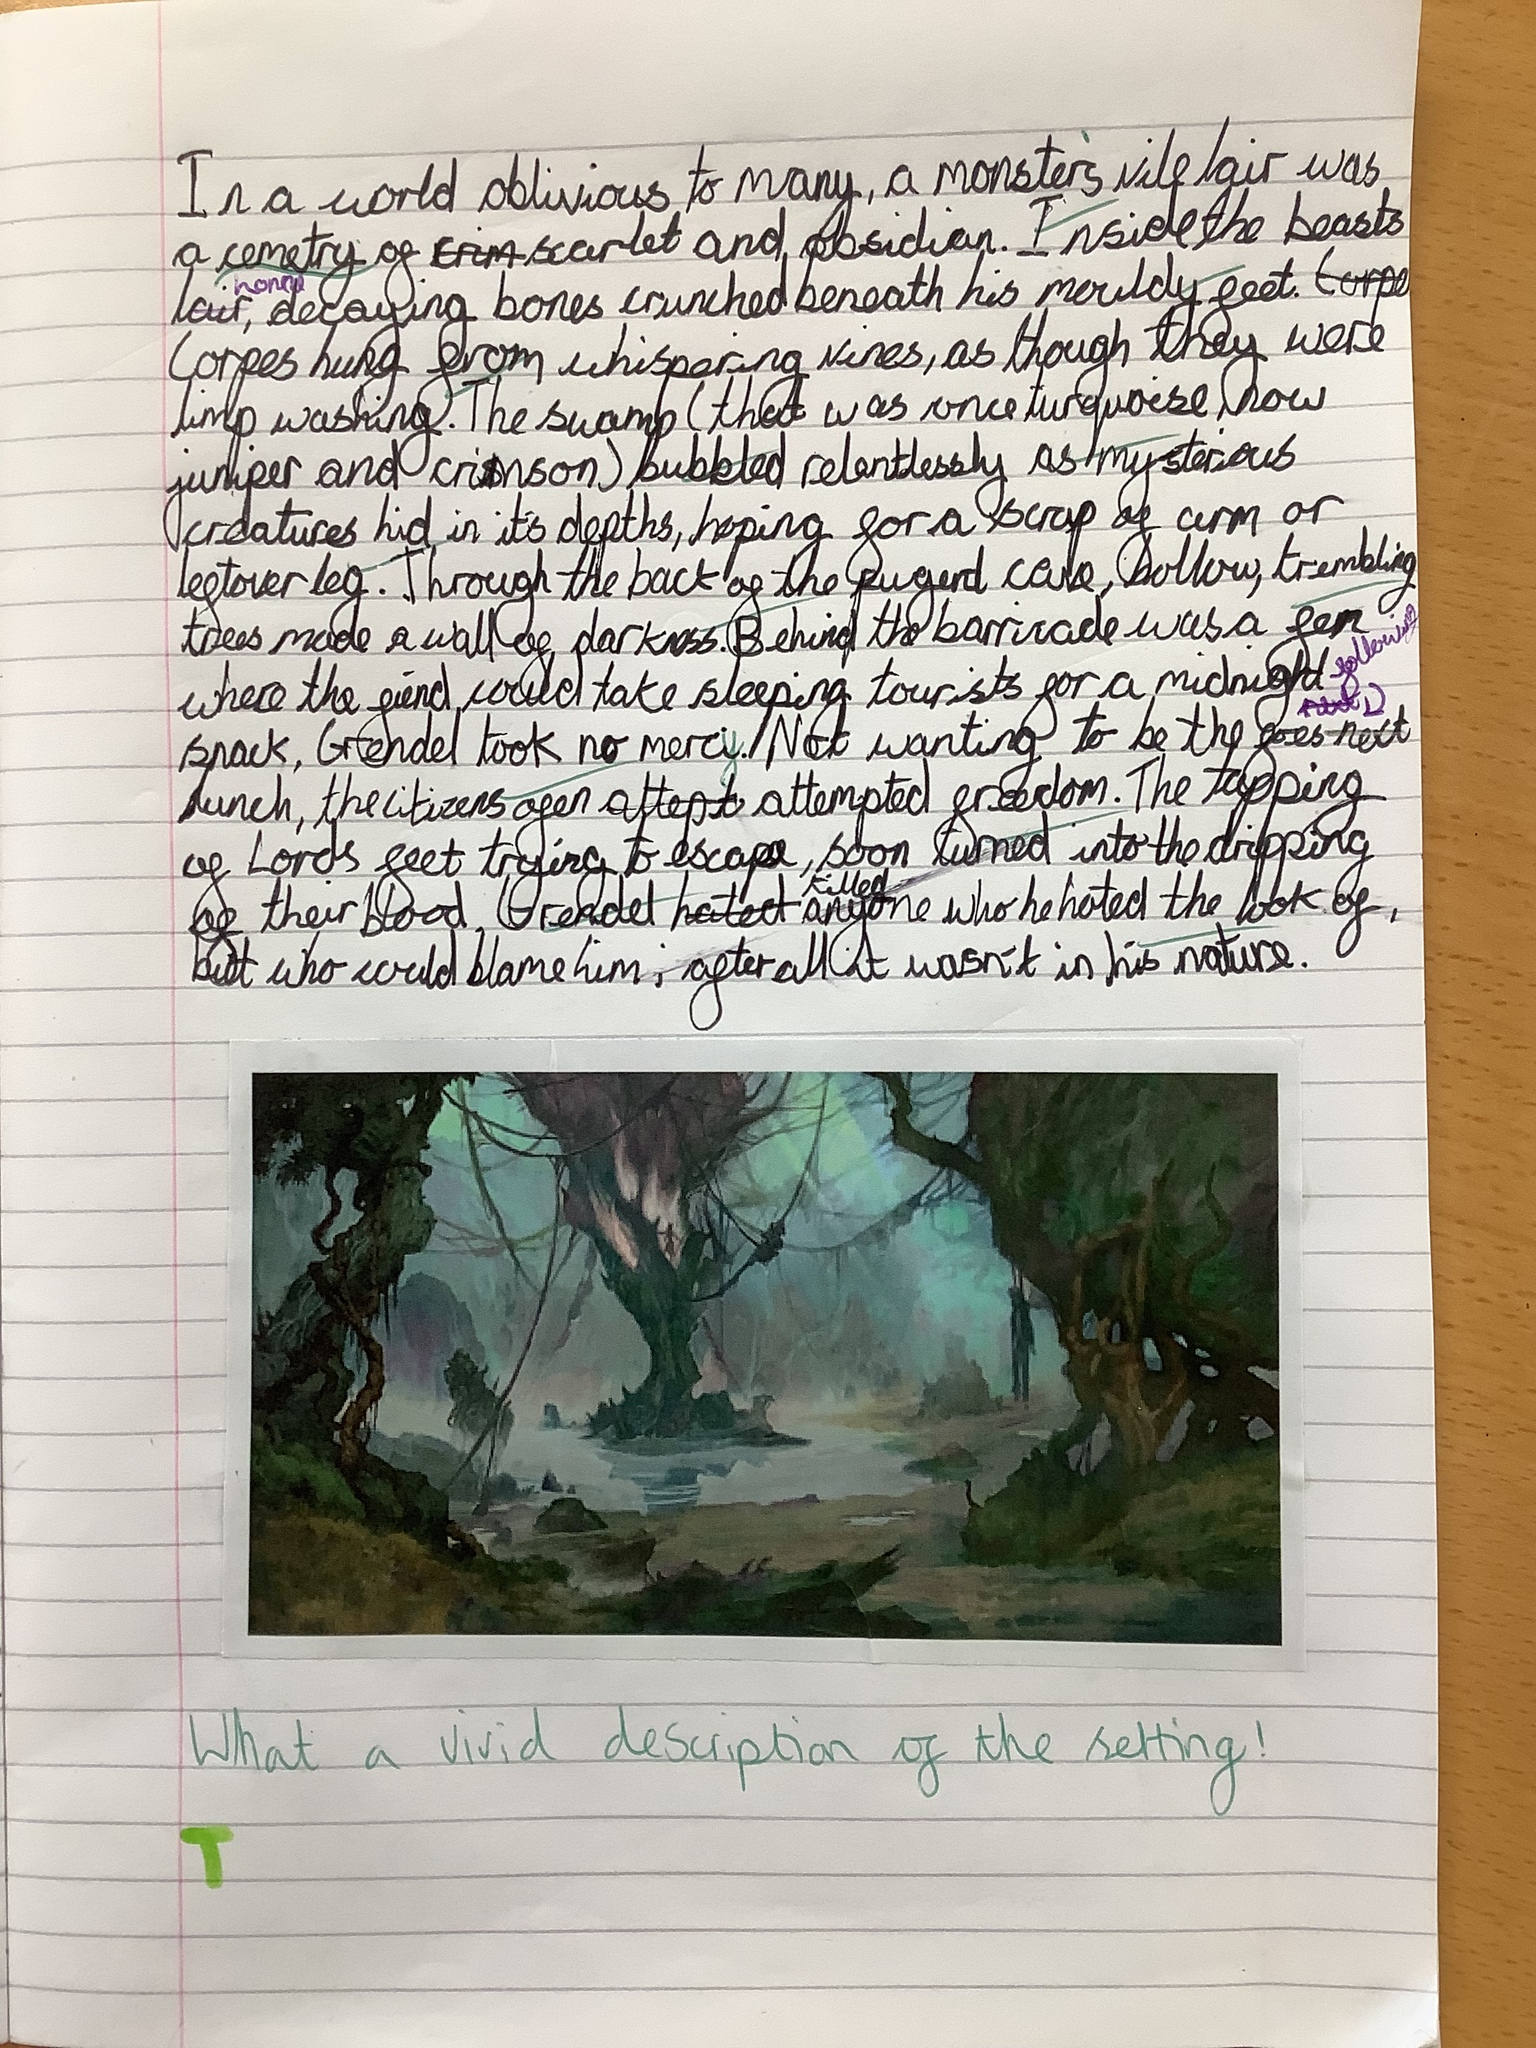 In a world oblivious to many, a monster's vile lair was
a cemetry of crim scarlet and obsidian. Inside the beasts
lair, decaying bones crunched beneath his mouldy feet. Corpe
Corpes hung from whispering vines, as though they were
limp washing. The swamp (that was once turquoise, now
juniper and crimson) bubbled relentlessly as mysterious
creatures hid in it's depths, hoping for a scrap of arm or
leftover leg. Through the back of the cave, hollow, trembling
trees made a wall of darkness. Behind the barricade was a
where the fiend would take sleeping tourists for a midnight
following
snack, Grendel took no mercy. Not wanting to be the next
lunch, the citizens ofen attept attempted freedom. The tapping
of Lords feet trying to escape, soon turned into the dripping
killed
of their blood. Grendel hated anyone who he hated the look of,
but who could blame him; after all it wasn't in his nature.
What a vivid description of the setting!
T